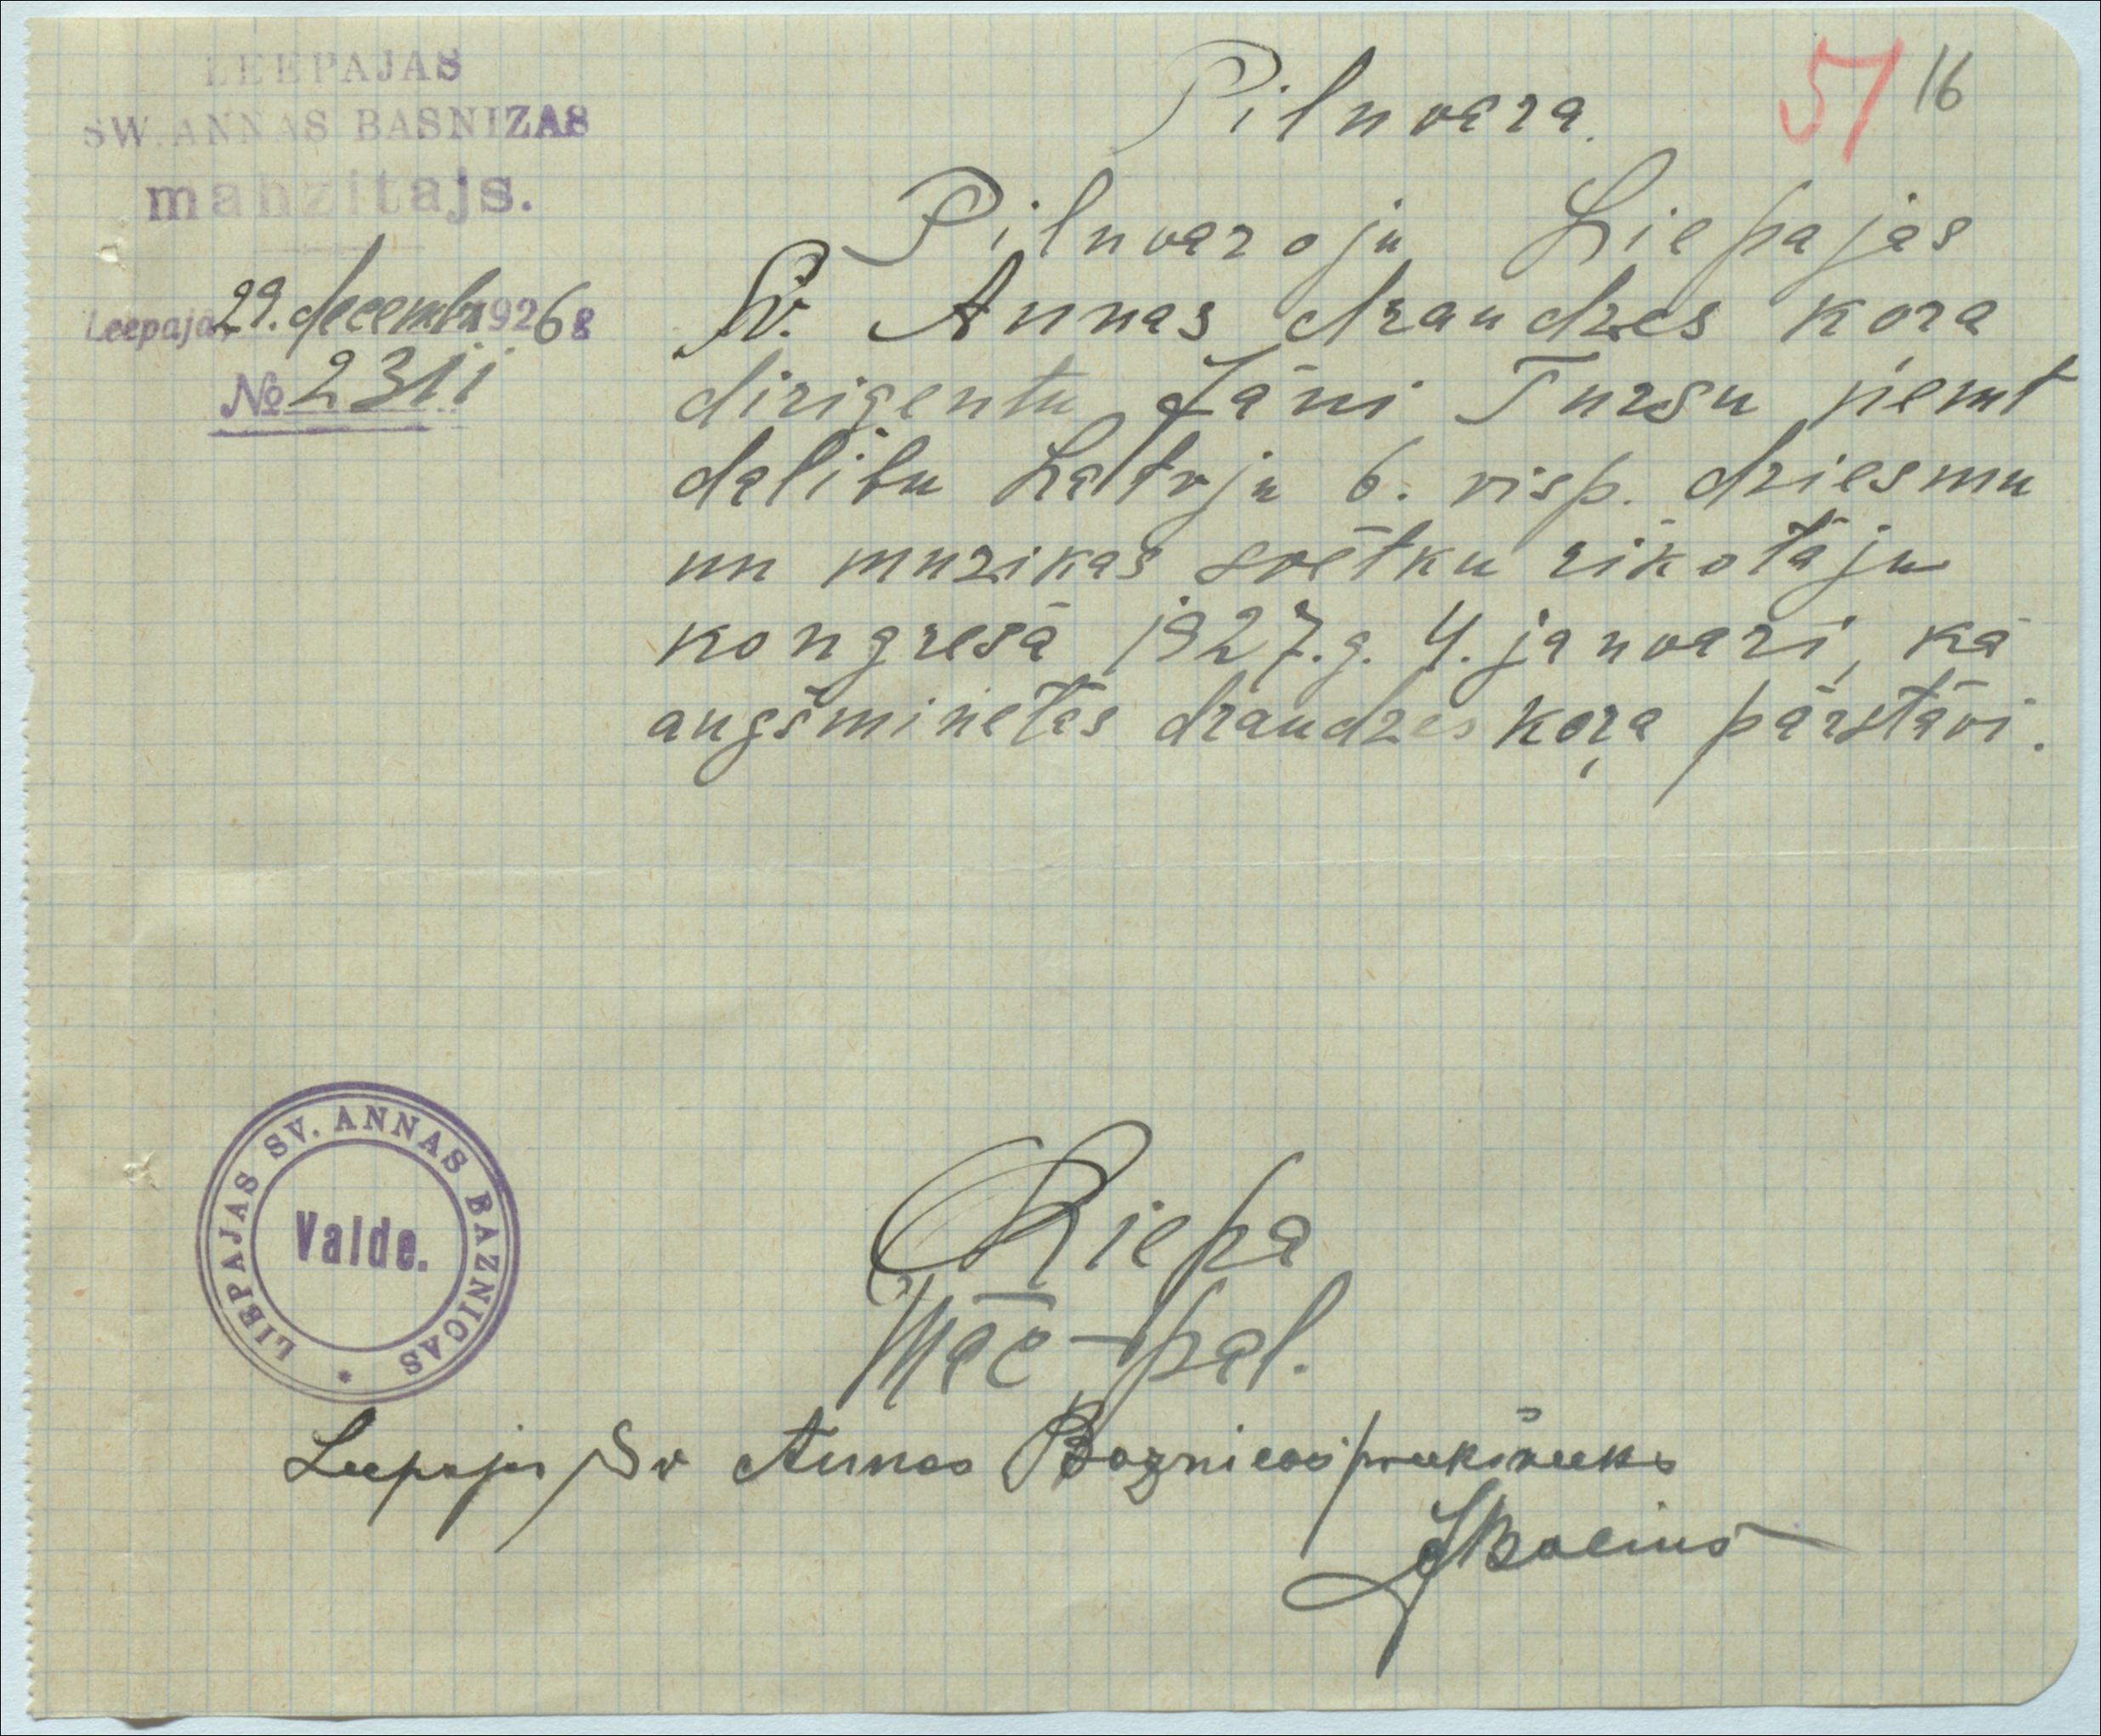 LEEPAJAS
SW. ANNAS BASNIZAS
mahzitajs.
Leepaja, 29. decembr 1926 g
No 2311
57 16
Pilnvara.
Pilnvaroju Liepajas
Sv. Annas draudzes kora
dirigentu Jāni Tursu ņemt
dalibu Latvju 6. visp. dziesmu
un muzikas svētku rīkotāju
kongresā 1927. g. 4. janvari, kā
augšminetās draudzes koŗa pārstāvi.
LIEPAJAS SV. ANNAS BAZNICAS
Valde.
*
Riepa
Māc-pal.
Leepajas Sv Annas Baznicas preekšneeks